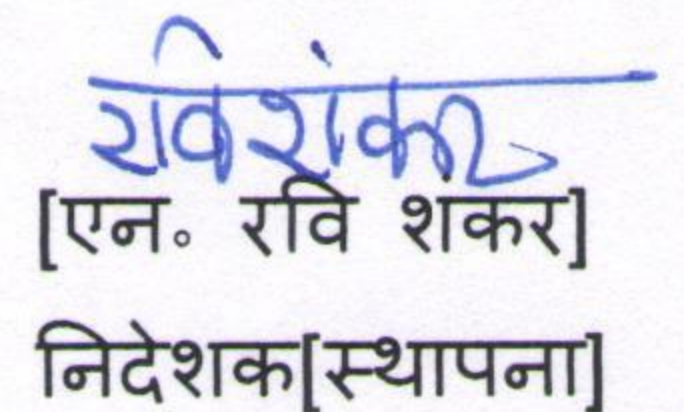 रवि शंकर
[एन॰ रवि शंकर]
निदेशक[स्थापना]